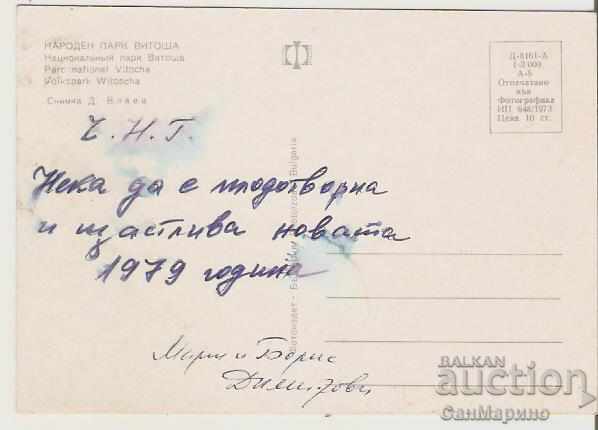 НАРОДЕН ПАРК ВИТОША
Национальный парк Витоша
Parc national Vitocha
Volkspark Witoscha
Снимка Д. Влаев
Д-8161-А
1-2 000
А-5
Отпечатано
във
Фотографика
ИП 848/1973
Цена 10 ст.
Ч. Н. Г.
Нека да е плодотворна
и щастлива новата
1979 година
Мария и Борис
Димитрови
Фотоиздат -
Bulgaria
BALKAN
auction
СанМарино